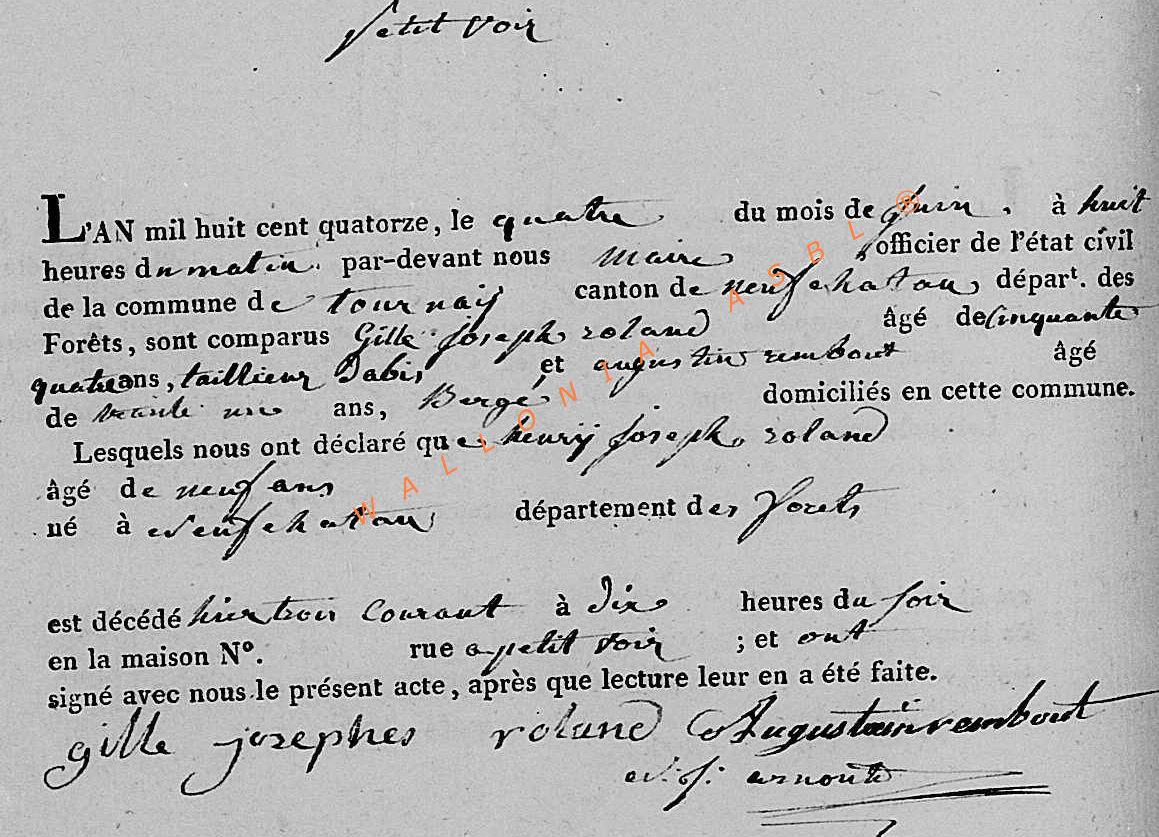 petit voir
L'AN mil huit cent quatorze, le quatre du mois de juin, à huit
heures du matin par-devant nous maire officier de l'état civil
de la commune de tournaij canton de neufchatau, départ. des
Forêts, sont comparus Gille joseph roland âgé de cinquante
quatre ans, taillieur Dabis et augustin rembout âgé
de trante un ans, Bergé domiciliés en cette commune.
Lesquels nous ont déclaré que henrÿ joseph roland
âgé de neuf ans
né à Neufchatau département des Forets
est décédé hier trois Courant à dix heures du soir
en la maison Nº. rue a petit voir ; et ont
signé avec nous le présent acte, après que lecture leur en a été faite.
gille josephes roland Augustain rembout
arnould
WALLONIA ASBL ®